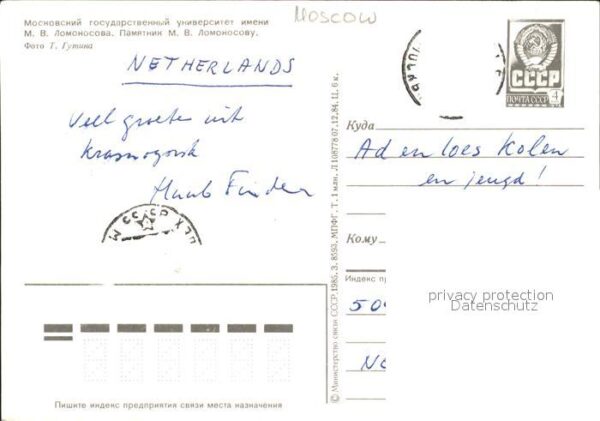 Московский государственный университет имени
М. В. Ломоносова. Памятник М. В. Ломоносову.
Фото Т. Гутина
MOSCOW
NETHERLANDS
Veel groeten uit
Krasnogorsk
СССР
ПОЧТА СССР 4
Куда
Ad en Loes Kolen
en jeugd!
Кому
Индекс пр
privacy protection
Datenschutz
© Министерство связи СССР, 1985. З. 8593. МПФГ. Т. 1 млн. Л 108778 07.12.84. Ц. 6 к.
Пишите индекс предприятия связи места назначения